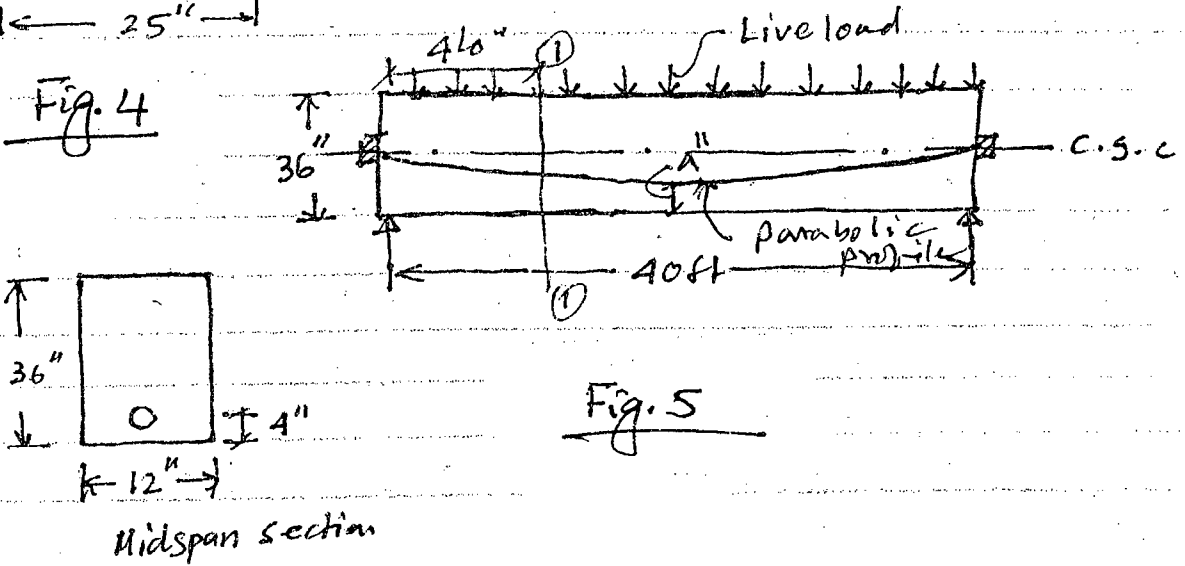 25"
Fig. 4
4'0"
①
Live load
36"
a"
c.g.c
parabolic
profile
40ft
①
36"
4"
12"
Midspan section
Fig. 5